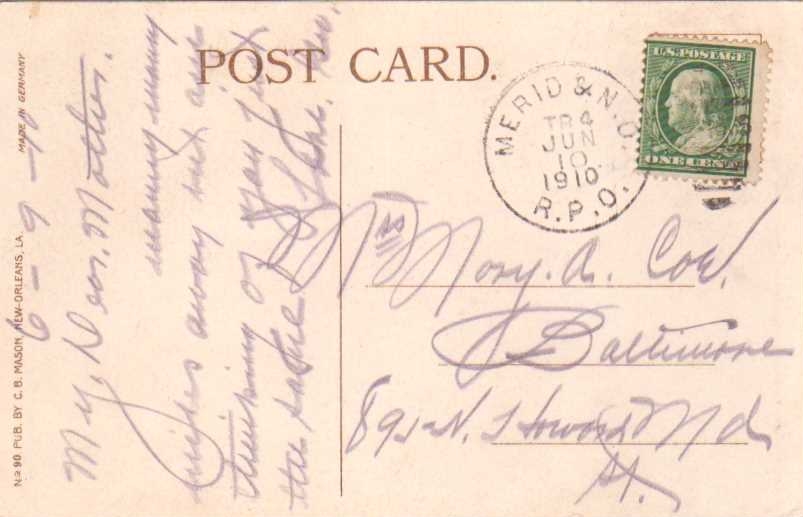 POST CARD.
MADE IN GERMANY
No 90 PUB. BY C. B. MASON, NEW-ORLEANS, LA.
U.S. POSTAGE
ONE CENT
MERID & N.O.
TR 4
JUN
10
1910
R.P.O.
6-9-10
My, Dear. Mother.
many many
miles away but am
thinking of you just
the same
Mrs Mary. A. Coe.
Baltimore
N. Howard Md
St.